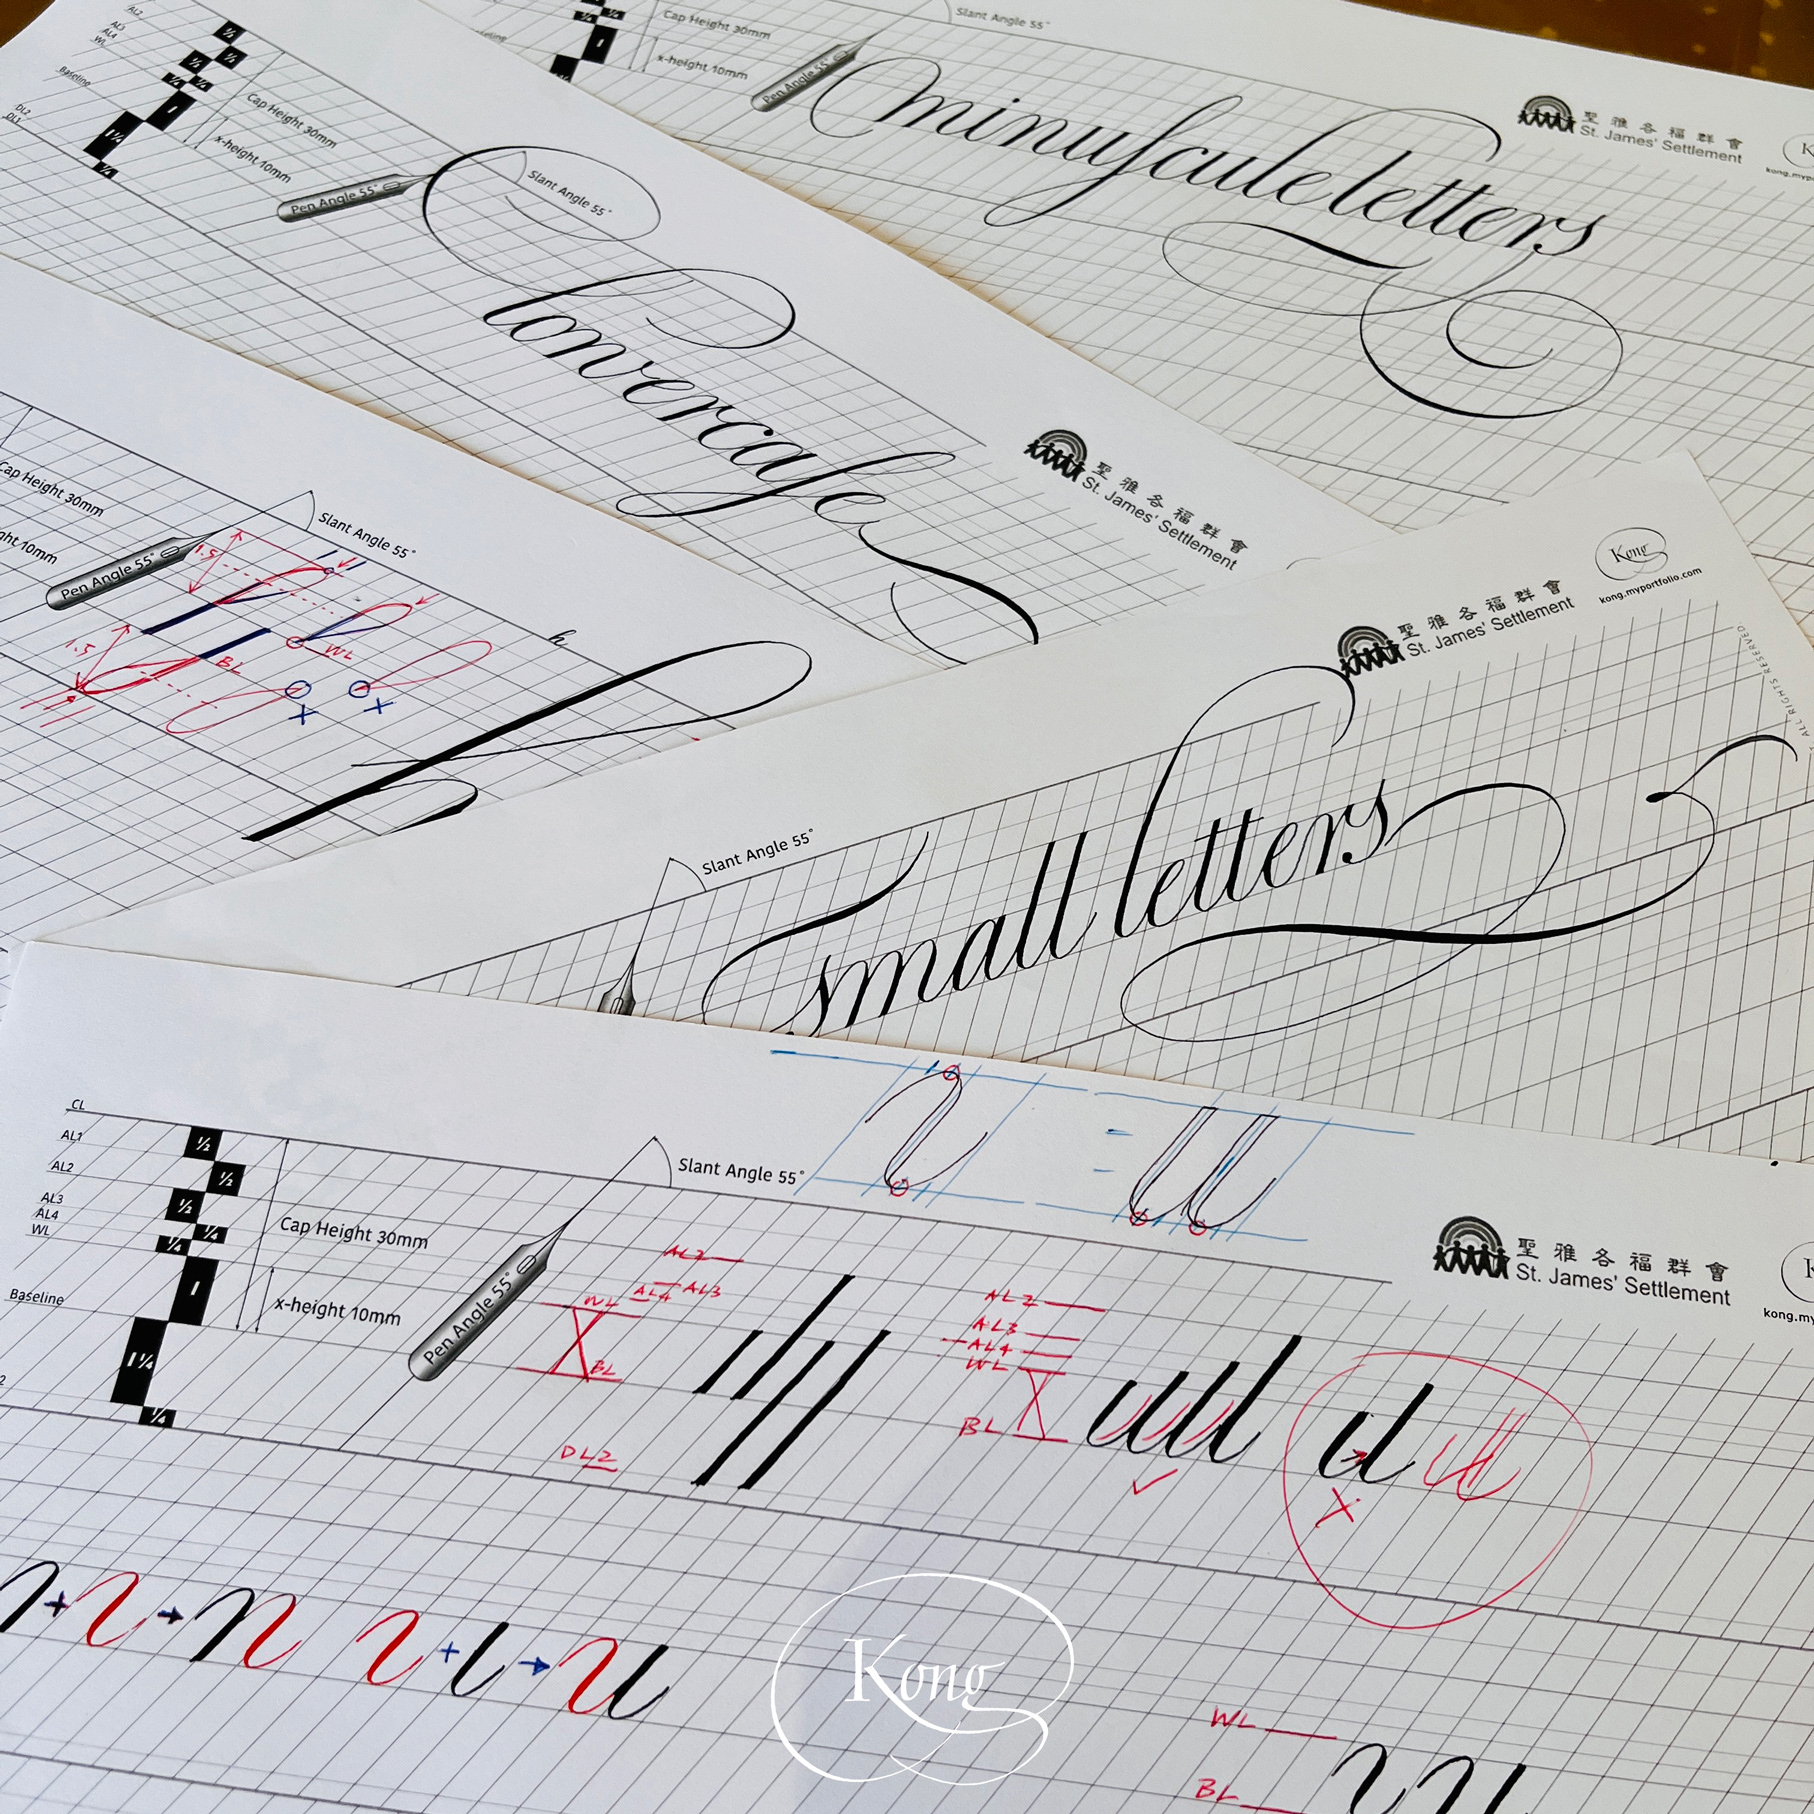 Cap Height 30mm
x-height 10mm
Pen Angle 55°
Slant Angle 55°
minuſcule letters
聖雅各福群會
St. James' Settlement
AL2
AL3
AL4
WL
Baseline
DL2
DL1
½
½
½
¼
¼
1
1¼
¼
Cap Height 30mm
x-height 10mm
Pen Angle 55°
Slant Angle 55°
lowercaſe
聖雅各福群會
St. James' Settlement
Cap Height 30mm
Pen Angle 55°
Slant Angle 55°
1.5
1.5
WL
BL
h
Slant Angle 55°
small letters
聖雅各福群會
St. James' Settlement
Kong
kong.myportfolio.com
ALL RIGHTS RESERVED
CL
AL1
AL2
AL3
AL4
WL
Baseline
½
½
½
¼
¼
1
1¼
¼
Cap Height 30mm
x-height 10mm
Pen Angle 55°
Slant Angle 55°
=
聖雅各福群會
St. James' Settlement
AL2
AL4 AL3
WL
BL
DL2
AL2
AL3
AL4
WL
BL
n + ı → n ı + ı → u
Kong
WL
BL